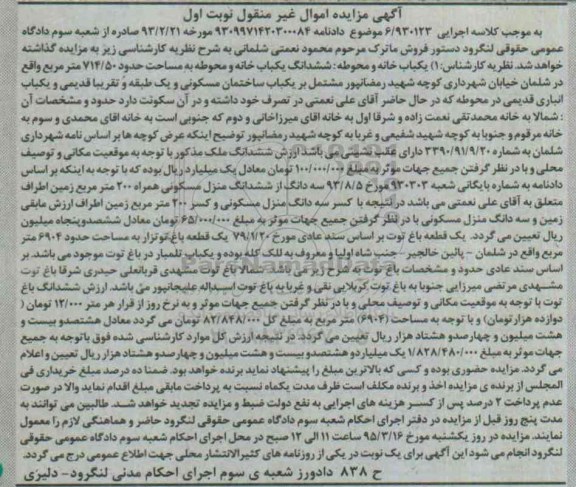 آگهی مزایده اموال غیر منقول نوبت اول
به موجب کلاسه اجرایی ۶/۹۳۰۱۲۳ موضوع دادنامه ۹۳۰۹۹۷۱۴۲۰۳۰۰۰۸۴ مورخه ۹۳/۲/۲۱ صادره از شعبه سوم دادگاه
عمومی حقوقی لنگرود دستور فروش ماترک مرحوم محمود نعمتی شلمانی به شرح نظریه کارشناسی زیر به مزایده گذاشته
خواهد شد. نظریه کارشناس: ۱) یکباب خانه و محوطه: ششدانگ یکباب خانه و محوطه به مساحت حدود ۷۱۴/۵۰ متر مربع واقع
در شلمان خیابان شهرداری کوچه شهید رمضانپور مشتمل بر یکباب ساختمان مسکونی و یک طبقه و تقریبا قدیمی و یکباب
انباری قدیمی در محوطه که در حال حاضر آقای علی نعمتی در تصرف خود داشته و در آن سکونت دارد حدود و مشخصات آن
: شمالا به خانه محمدتقی نعمت زاده و شرقا اول به خانه اقای میرزاخانی و دوم که جنوبی است به خانه اقای محمدی و سوم به
خانه مرقوم و جنوبا به کوچه شهید شفیعی و غربا به کوچه شهید رمضانپور توضیح اینکه عرض کوچه ها بر اساس نامه شهرداری
شلمان به شماره ۳۳۹۰/۹۱/۹/۲۰ دارای عقب نشینی می باشد ارزش ششدانگ ملک مذکور با توجه به موقعیت مکانی و توصیف
محلی و با در نظر گرفتن جمیع جهات موثر به مبلغ ۱۰۰/۰۰۰/۰۰۰ تومان معادل یک میلیارد ریال بوده که با توجه به اینکه بر اساس
دادنامه به شماره بایگانی شعبه ۹۳۰۳۰۳ مورخ ۹۳/۸/۵ سه دانگ از ششدانگ منزل مسکونی همراه ۲۰۰ متر مربع زمین اطراف
متعلق به آقای علی نعمتی می باشد در نتیجه با کسر سه دانگ منزل مسکونی و کسر ۲۰۰ متر مربع زمین اطراف ارزش مابقی
زمین و سه دانگ منزل مسکونی با در نظر گرفتن جمیع جهات موثر به مبلغ ۶۵/۰۰۰/۰۰۰ تومان معادل ششصدوپنجاه میلیون
ریال تعیین می گردد. یک قطعه باغ توت بر اساس سند عادی مورخ ۷۹/۱/۲۰ یک قطعه باغ توتزار به مساحت حدود ۶۹۰۴ متر
مربع واقع در شلمان - پائین خالجیر - جنب شاه اولیا و معروف به للک کله بوده و یکباب تلمبار در باغ توت موجود می باشد. بر
اساس سند عادی حدود و مشخصات باغ توت به شرح زیر می باشد شمالا باغ توت مشهدی قربانعلی حیدری شرقا باغ توت
مشهدی مرتضی میرزایی جنوبا به باغ توت کربلایی نقی و غربا به باغ توت اسداله علیجانپور می باشد. ارزش ششدانگ باغ
توت با توجه به موقعیت مکانی و توصیف محلی و با در نظر گرفتن جمیع جهات موثر و به نرخ روز از قرار هر متر ۱۲/۰۰۰ تومان (
دوازده هزارتومان) و با توجه به مساحت (۶۹۰۴) متر مربع به مبلغ کل ۸۲/۸۴۸/۰۰۰ تومان می گردد معادل هشتصدو بیست و
هشت میلیون و چهارصدو هشتاد هزار ریال تعیین می گردد. در نتیجه ارزش کل موارد کارشناسی شده فوق باتوجه به جمیع
جهات موثر به مبلغ ۱/۸۲۸/۴۸۰/۰۰۰ یک میلیارد و هشتصدو بیست و هشت میلیون و چهارصدو هشتاد هزار ریال تعیین و اعلام
می گردد. مزایده حضوری بوده و کسی که بالاترین مبلغ را پیشنهاد نماید برنده خواهد بود. ضمنا ده درصد مبلغ خریداری فی
المجلس از برنده ی مزایده اخذ و برنده مکلف است ظرف مدت یکماه نسبت به پرداخت مابقی مبلغ اقدام نماید والا در صورت
عدم پرداخت ۲ درصد پس از کسر هزینه های اجرایی به نفع دولت ضبط و مزایده تجدید خواهد شد. طالبین می توانند به
مدت پنج روز قبل از مزایده در دفتر اجرای احکام شعبه سوم دادگاه عمومی حقوقی لنگرود حاضر و هماهنگی لازم را معمول
نمایند. مزایده در روز یکشنبه مورخ ۹۵/۳/۱۶ ساعت ۱۱ الی ۱۲ صبح در محل اجرای احکام شعبه سوم دادگاه عمومی حقوقی
لنگرود انجام می شود این آگهی برای یک نوبت در یکی از روزنامه های کثیرالانتشار محلی جهت اطلاع عمومی درج می گردد.
ح ۸۳۸ دادورز شعبه ی سوم اجرای احکام مدنی لنگرود- دلیزی